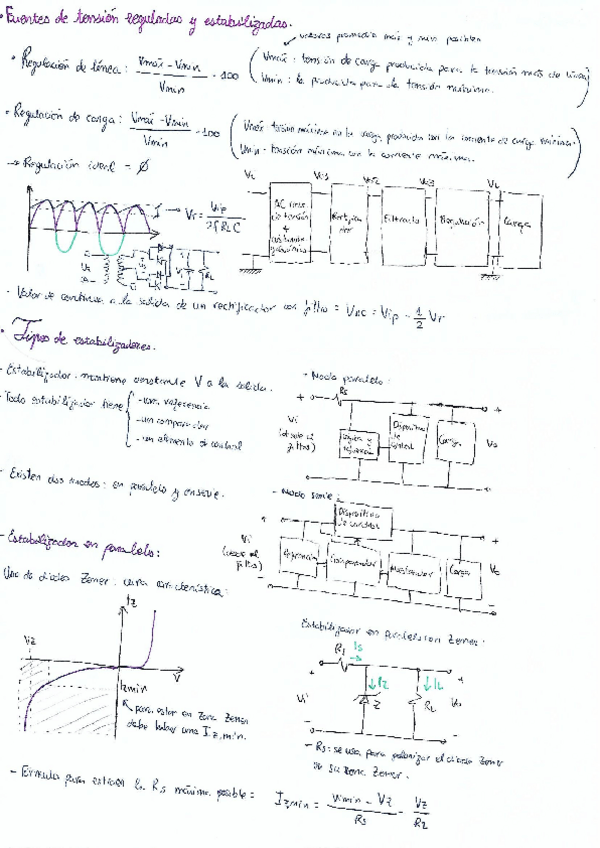 • Fuentes de tensión reguladas y estabilizadas.
valores promedio max y min posibles
• Regulación de línea: Vmax - Vmin / Vmin · 100
Vmax: tensión de carga producida para la tensión máx de línea
Vmin: la producida para la tensión mínima.
• Regulación de carga: Vmax - Vmin / Vmin · 100
Vmax tensión máxima en la carga producida con la corriente de carga mínima.
Vmin: tensión mínima con la corriente máxima.
→ Regulación ideal = Ø
→ Vr = Vip / 2f RL C
Rectificador
Filtrado
Regulación
Carga
- Valor de continua a la salida de un rectificador con filtro = VDC = Vip - 1/2 Vr
• Tipos de estabilizadores.
- Estabilizador mantiene constante V a la salida.
- Todo estabilizador tiene
- una referencia
- un comparador
- un elemento de control
- Modo paralelo:
Rs
Vi
(desde el filtro)
Dispositivo de control
Carga
Vo
- Existen dos modos: en paralelo y en serie.
- Modo serie:
Dispositivo de control
Vi
(desde el filtro)
Referencia
Comparador
Muestreador
Carga
Vo
- Estabilizador en paralelo:
Uso de diodos Zener: curva característica:
Iz
Vz
V
Izmin
para estar en zona Zener
debe haber una Iz,min.
Estabilizador en paralelo con Zener:
Rs
Is
Iz
IL
Vi
Z
RL
Vo
- Rs: se usa para polarizar el diodo Zener
en su zona Zener.
- Fórmula para estimar la Rs máxima posible: Izmin = Vimin - Vz / Rs - Vz / RL